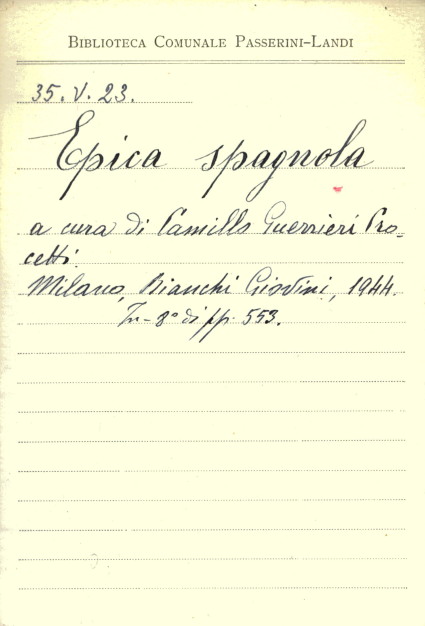 BIBLIOTECA COMUNALE PASSERINI-LANDI
35. V. 23.
Epica spagnola
a cura di Camillo Guerrieri Cro-
cetti.
Milano, Bianchi Giovini, 1944.
In-8° di pp. 553.